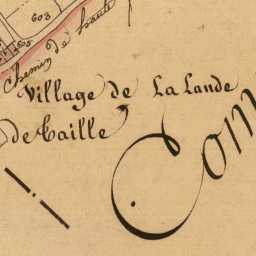 603
Chemin de
Village de La Lande
de Taille
Com